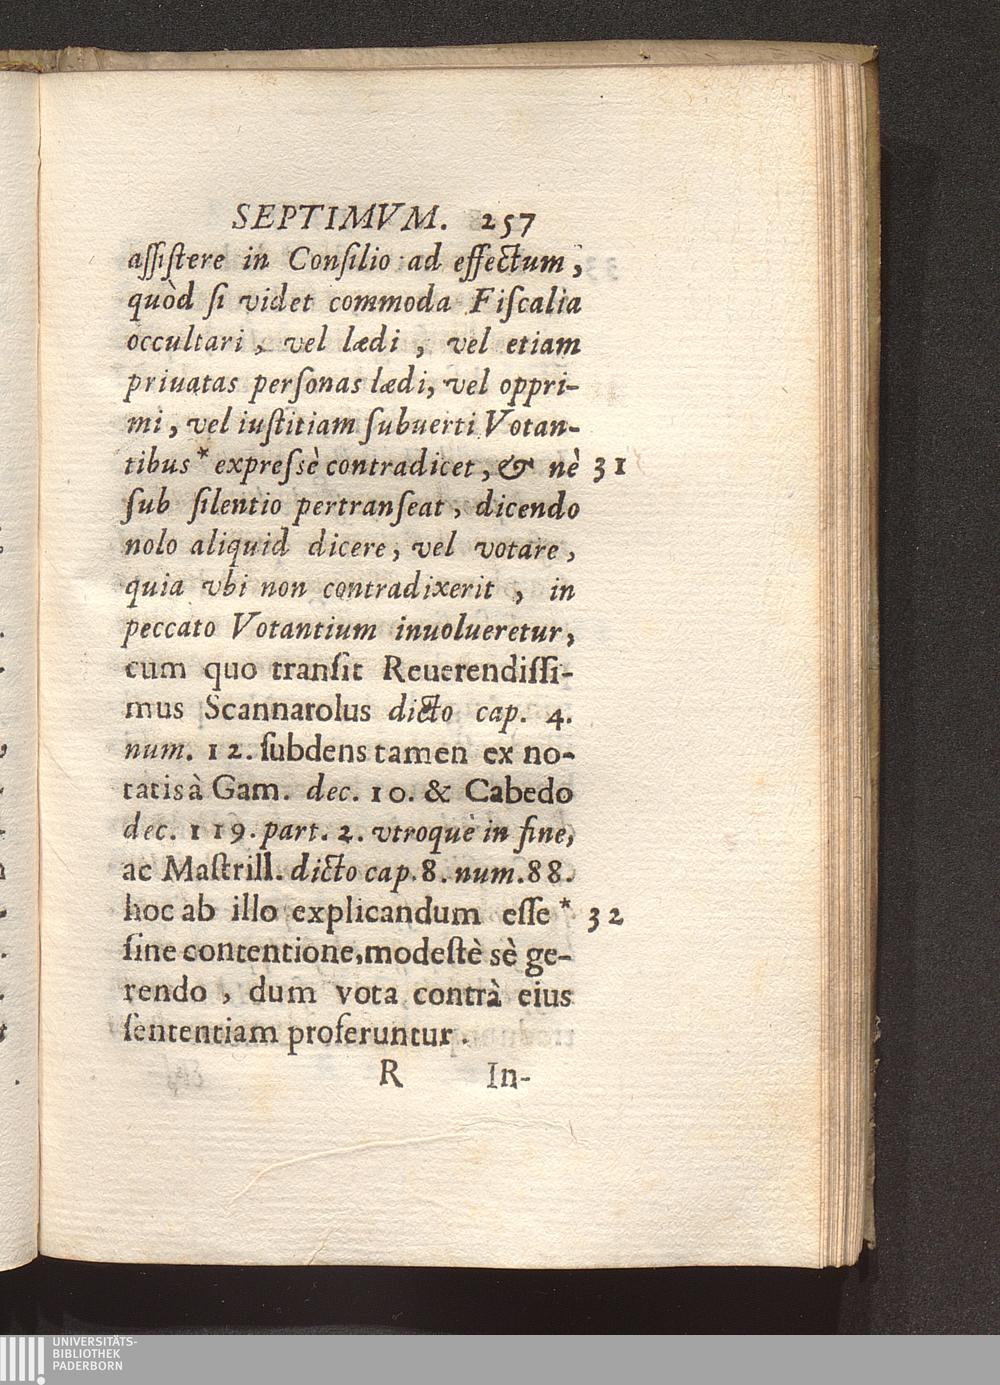 SEPTIMVM. 257
aſſiſtere in Conſilio ad effectum,
quòd ſi videt commoda Fiſcalia
occultari, vel lædi, vel etiam
priuatas perſonas lædi, vel oppri-
mi, vel iuſtitiam ſubuerti Votan-
tibus * expreſsè contradicet, & nè 31
ſub ſilentio pertranſeat, dicendo
nolo aliquid dicere, vel votare,
quia vbi non contradixerit, in
peccato Votantium inuolueretur,
cum quo tranſit Reuerendiſſi-
mus Scannarolus dicto cap. 4.
num. 12. ſubdens tamen ex no-
tatis à Gam. dec. 10. & Cabedo
dec. 119. part. 2. vtroque in fine,
ac Maſtrill. dicto cap. 8. num. 88.
hoc ab illo explicandum eſſe * 32
ſine contentione, modeſtè sè ge-
rendo, dum vota contrà eius
ſententiam proferuntur.
R In-
UNIVERSITÄTS-
BIBLIOTHEK
PADERBORN